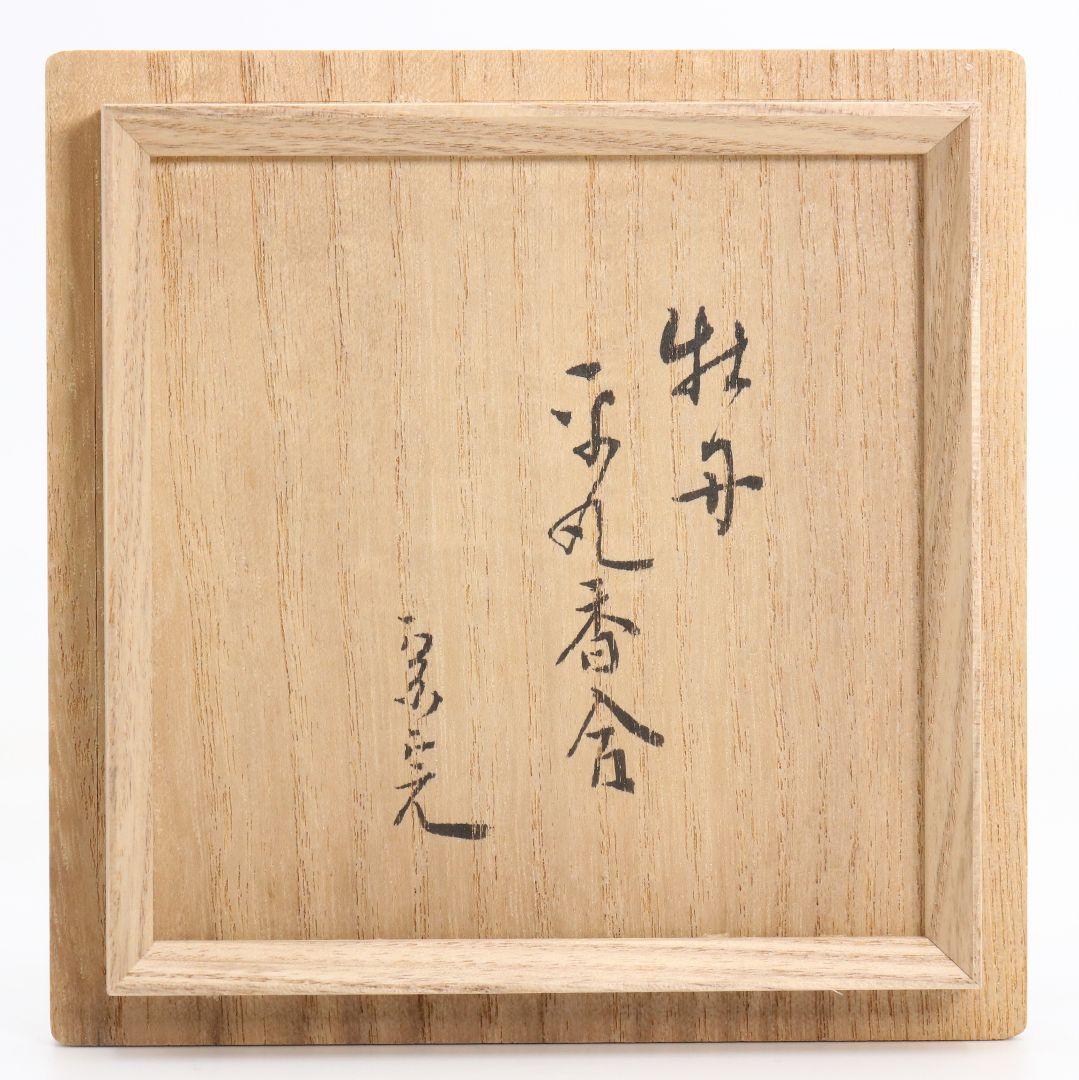 牡丹
平丸香合